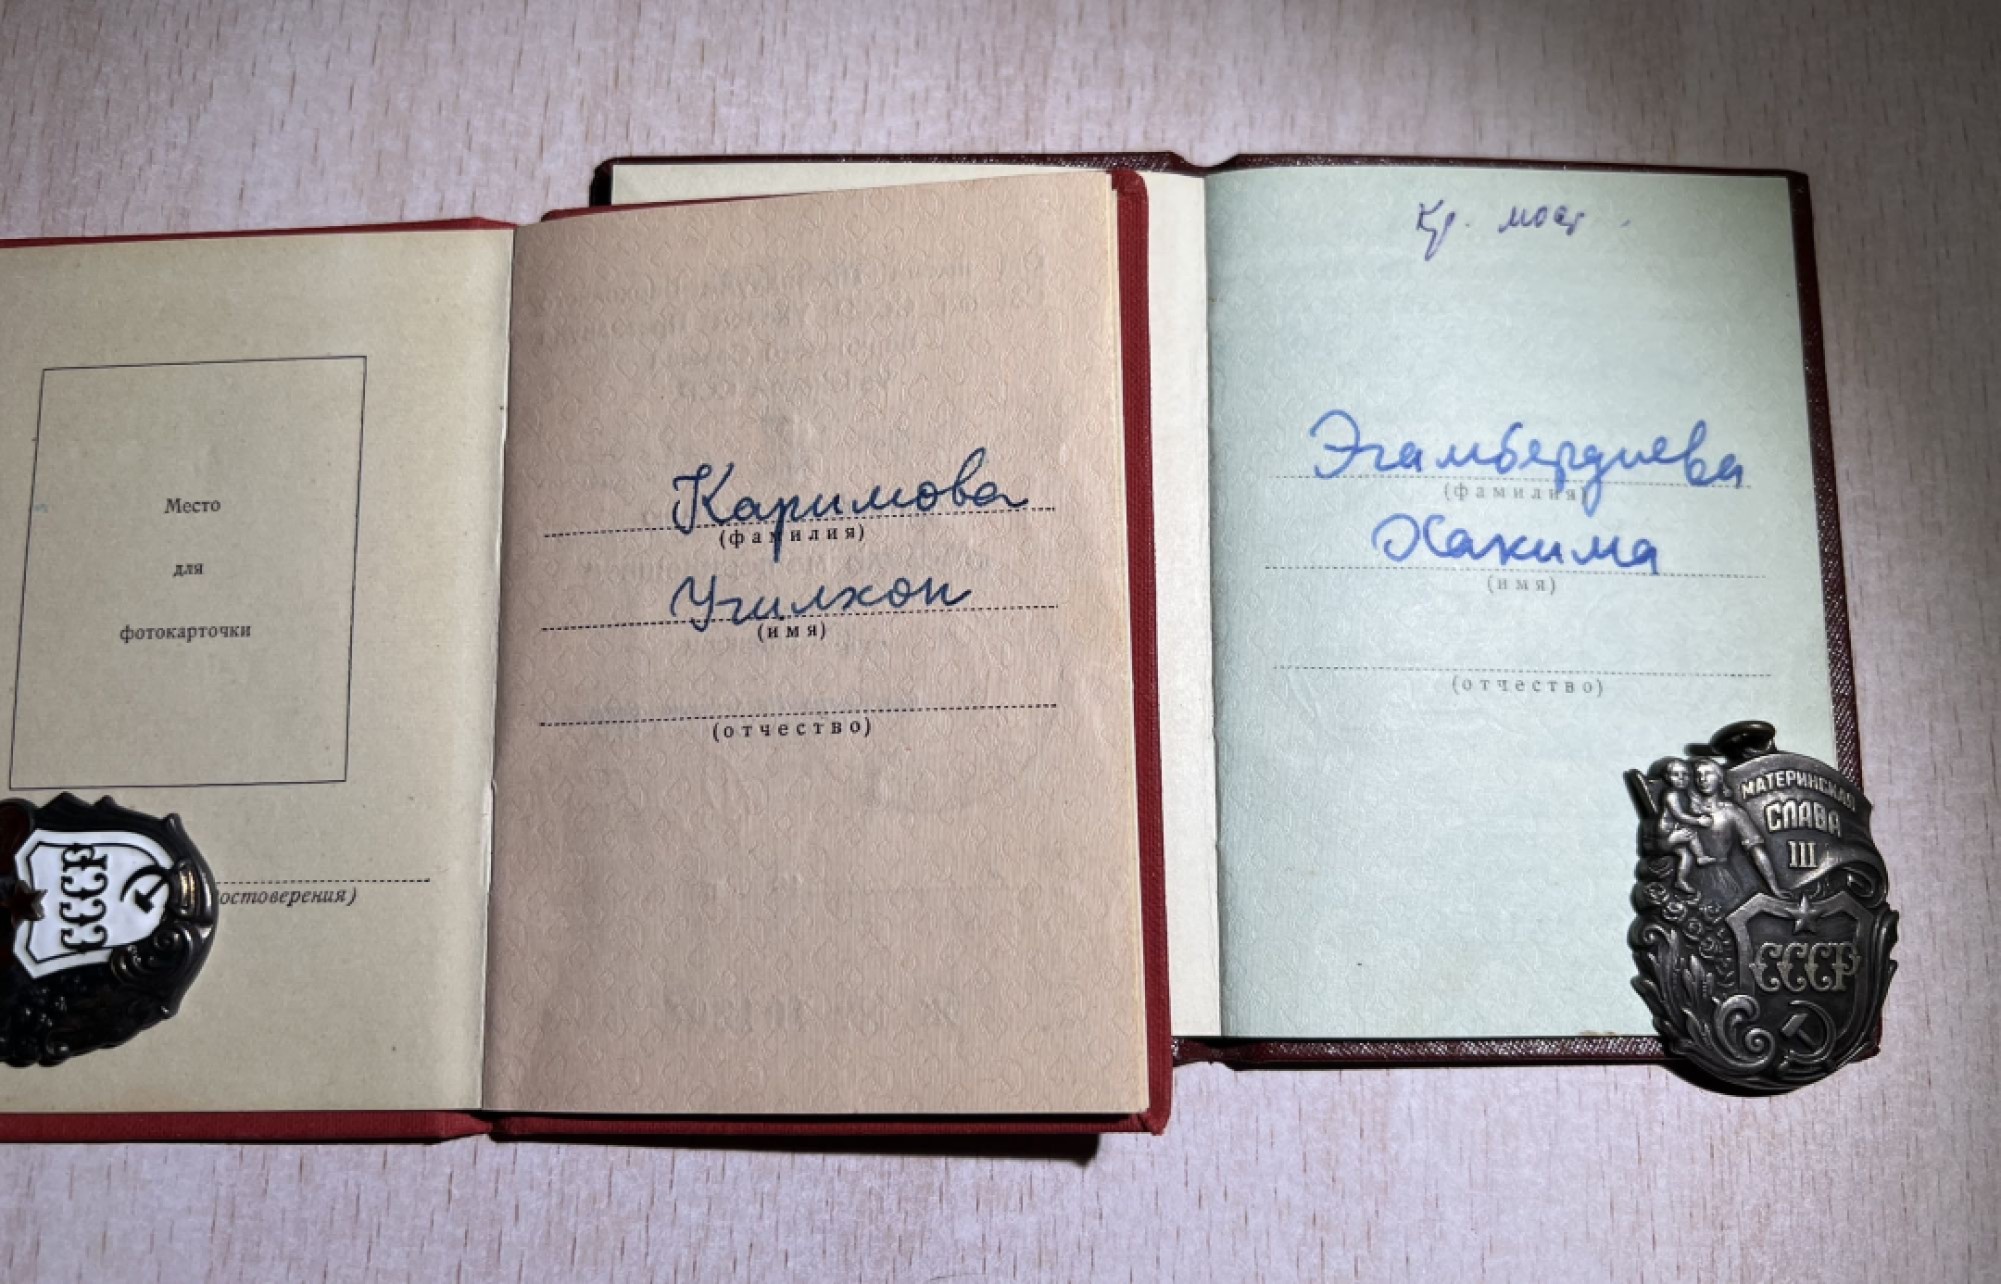 Место
для
фотокарточки
остоверения)
СССР
Каримова
(фамилия)
Угилхон
(имя)
(отчество)
Кр. моск.
Эгамбердиева
(фамилия)
Хакима
(имя)
(отчество)
МАТЕРИНСКАЯ
СЛАВА
III
СССР